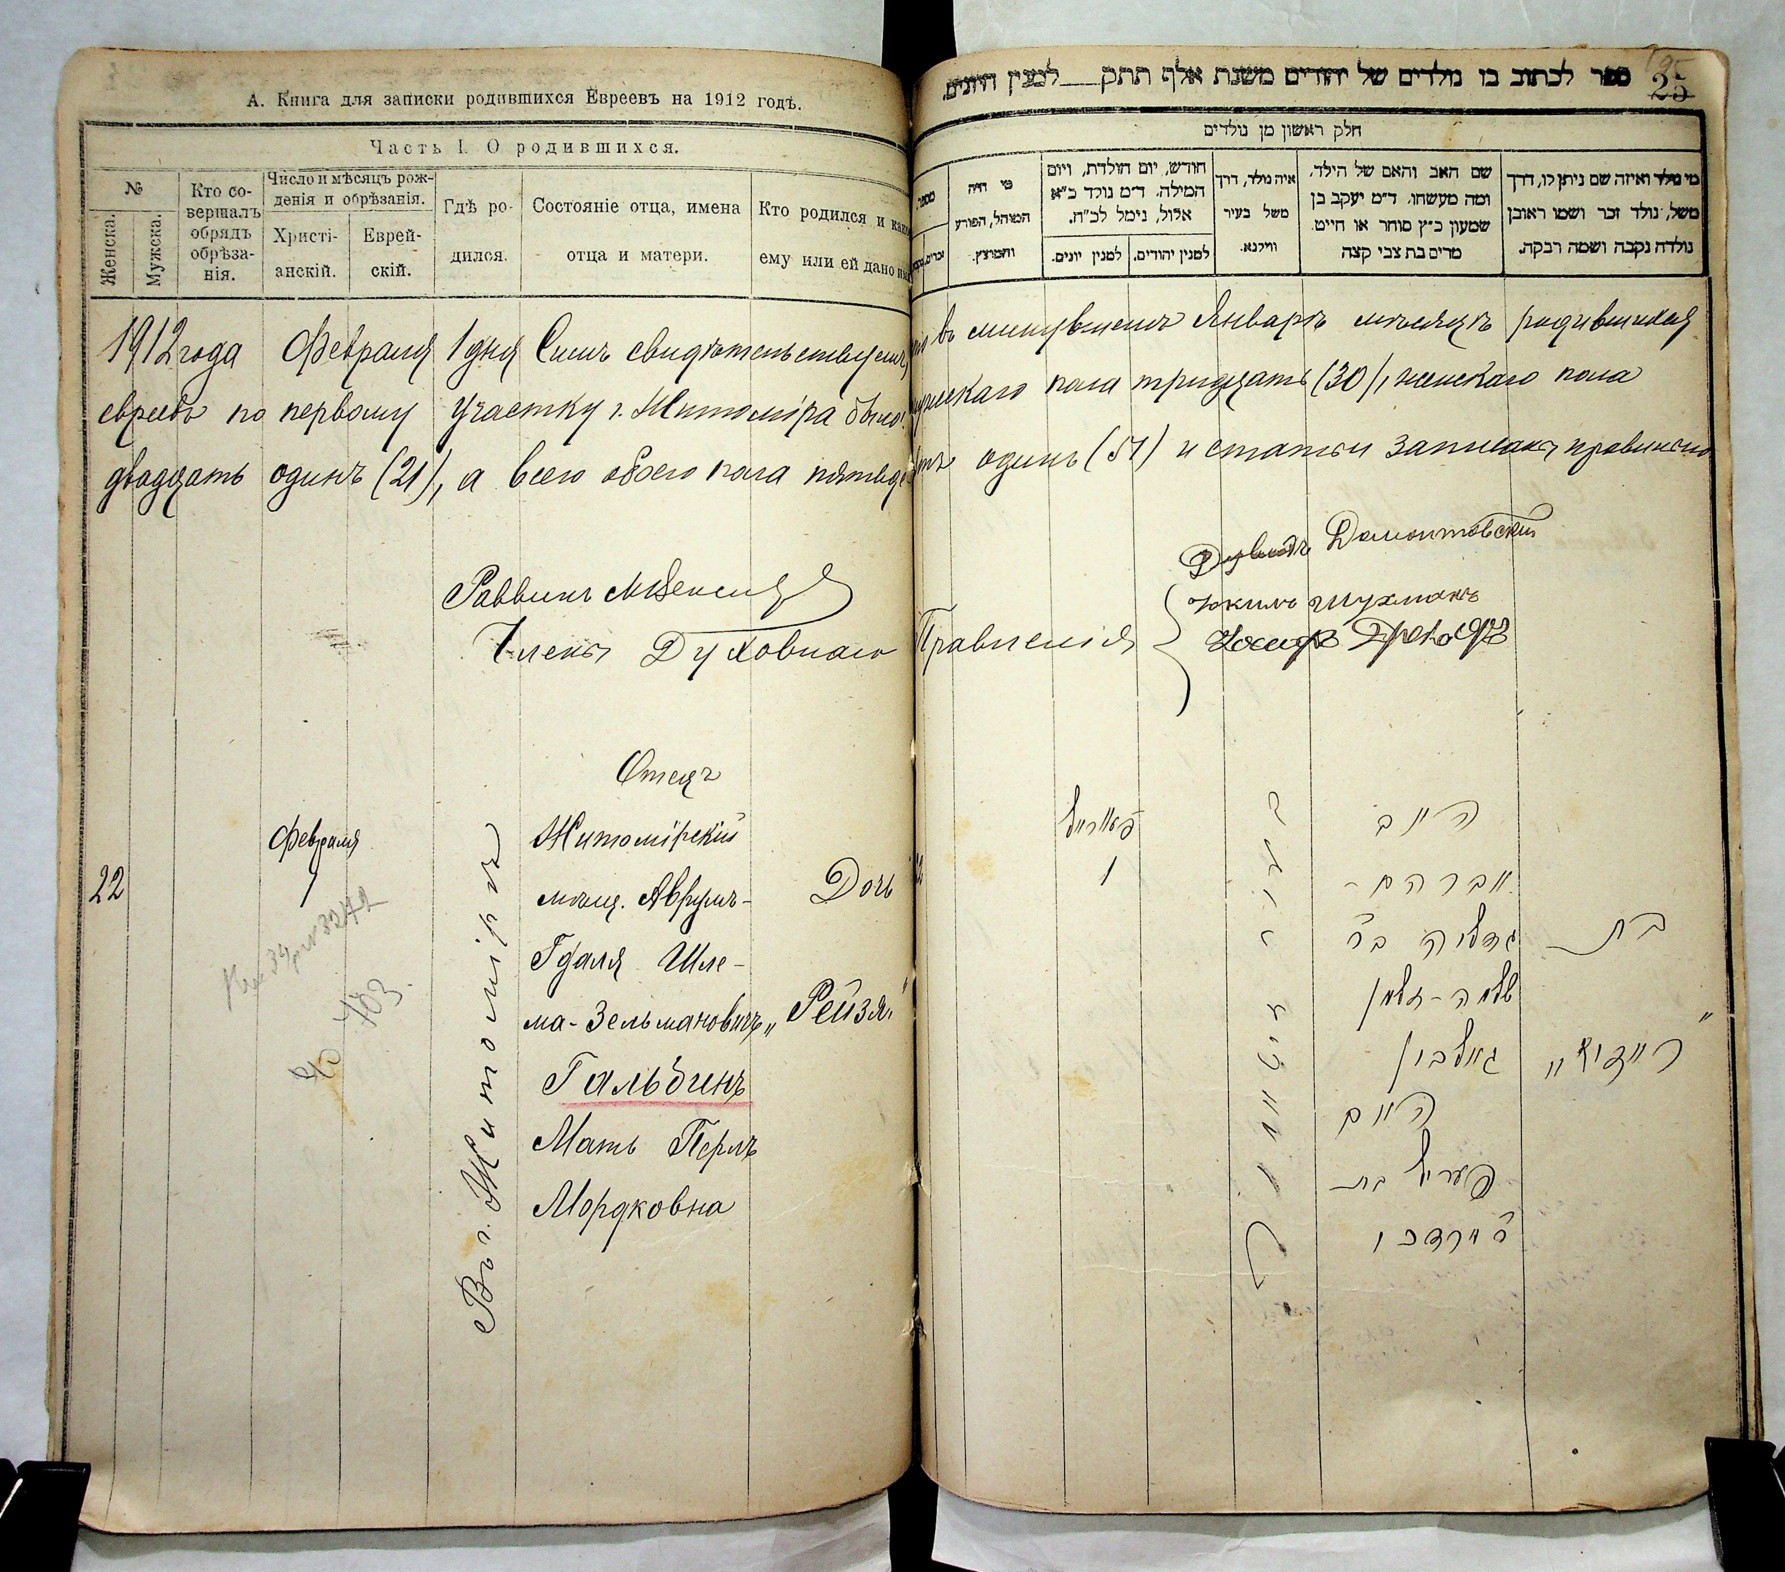 А. Книга для записки родившихся Евреевъ на 1912 годъ.
Часть I. О родившихся.
№
Женска.
Мужска.
Кто со-
вершалъ
обрядъ
обрѣза-
нія.
Число и мѣсяцъ рож-
денія и обрѣзанія.
Христі-
анскій.
Еврей-
скій.
Гдѣ ро-
дился.
Состояніе отца, имена
отца и матери.
Кто родился и как
ему или ей дано
ספר לכתוב בו נולדים של יהודים משנת אלף תתק___למנין היונים.
25
חלק ראשון מן נולדים
מי היה
המוהל, הפורע
והמוצץ.
חודש, יום הולדת, ויום
המילה. ד״מ נולד כ״א
אלול, נימל לכ״ח.
למנין יהודים.
למנין יונים.
איה נולד, דרך
משל בעיר
ווילנא.
שם האב והאם של הילד,
ומה מעשהו. ד״מ יעקב בן
שמעון כ״ץ סוחר או חייט.
מרים בת צבי קצה
מי נולד ואיזה שם ניתן לו, דרך
משל, נולד זכר ושמו ראובן
נולדה נקבה ושמה רבקה.
1912 года Февраля 1 дня Симъ свидѣтельствуемъ, въ минувшемъ Январѣ мѣсяцѣ родившихся
евреевъ по первому участку г. Житомира было: мужескаго пола тридцать (30), женскаго пола
двадцать одинъ (21), а всего обоего пола пятьдесятъ одинъ (51) и статьи записаны правильно
Раввинъ
Члены Духовнаго Правленія
Давидъ Домонтовскій
Іокимъ Шухманъ
Іосифъ
Отецъ
22
Февраля
1
Въ г. Житомірѣ
Житомірскій
мѣщ. Аврумъ-
Гдаля Шле-
ма-Зельмановичъ
Гальбинъ
Мать Перль
Мордковна
Дочь
„Рейзя"
פעווראל
1
האב
אברהם-
גדליה בר
שלמה-זלמן
גאלבין
האם
פערל בת
ר׳ מרדכי
בת
„רייזיא"